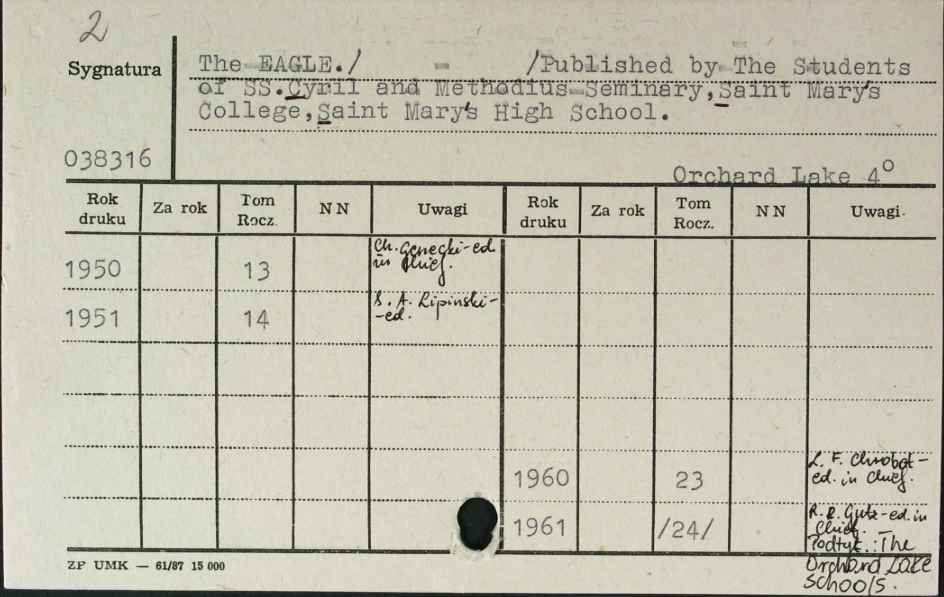 2
Sygnatura
The EAGLE./ - /Published by The Students
of SS.Cyril and Methodius Seminary,Saint Mary's
College,Saint Mary's High School.
038316
Orchard Lake 4°
Rok druku Za rok Tom Rocz. NN Uwagi Rok druku Za rok Tom Rocz. NN Uwagi
1950 13 Ch. -ed
in Chief.
1951 14 S. A. Lipinski-
-ed.
1960 23 L. F. Chrobot-
ed. in Chief.
1961 /24/ R. R. -ed. in
Chief. -
Podtyt.: The
Orchard Lake
Schools.
ZP UMK — 61/87 15 000